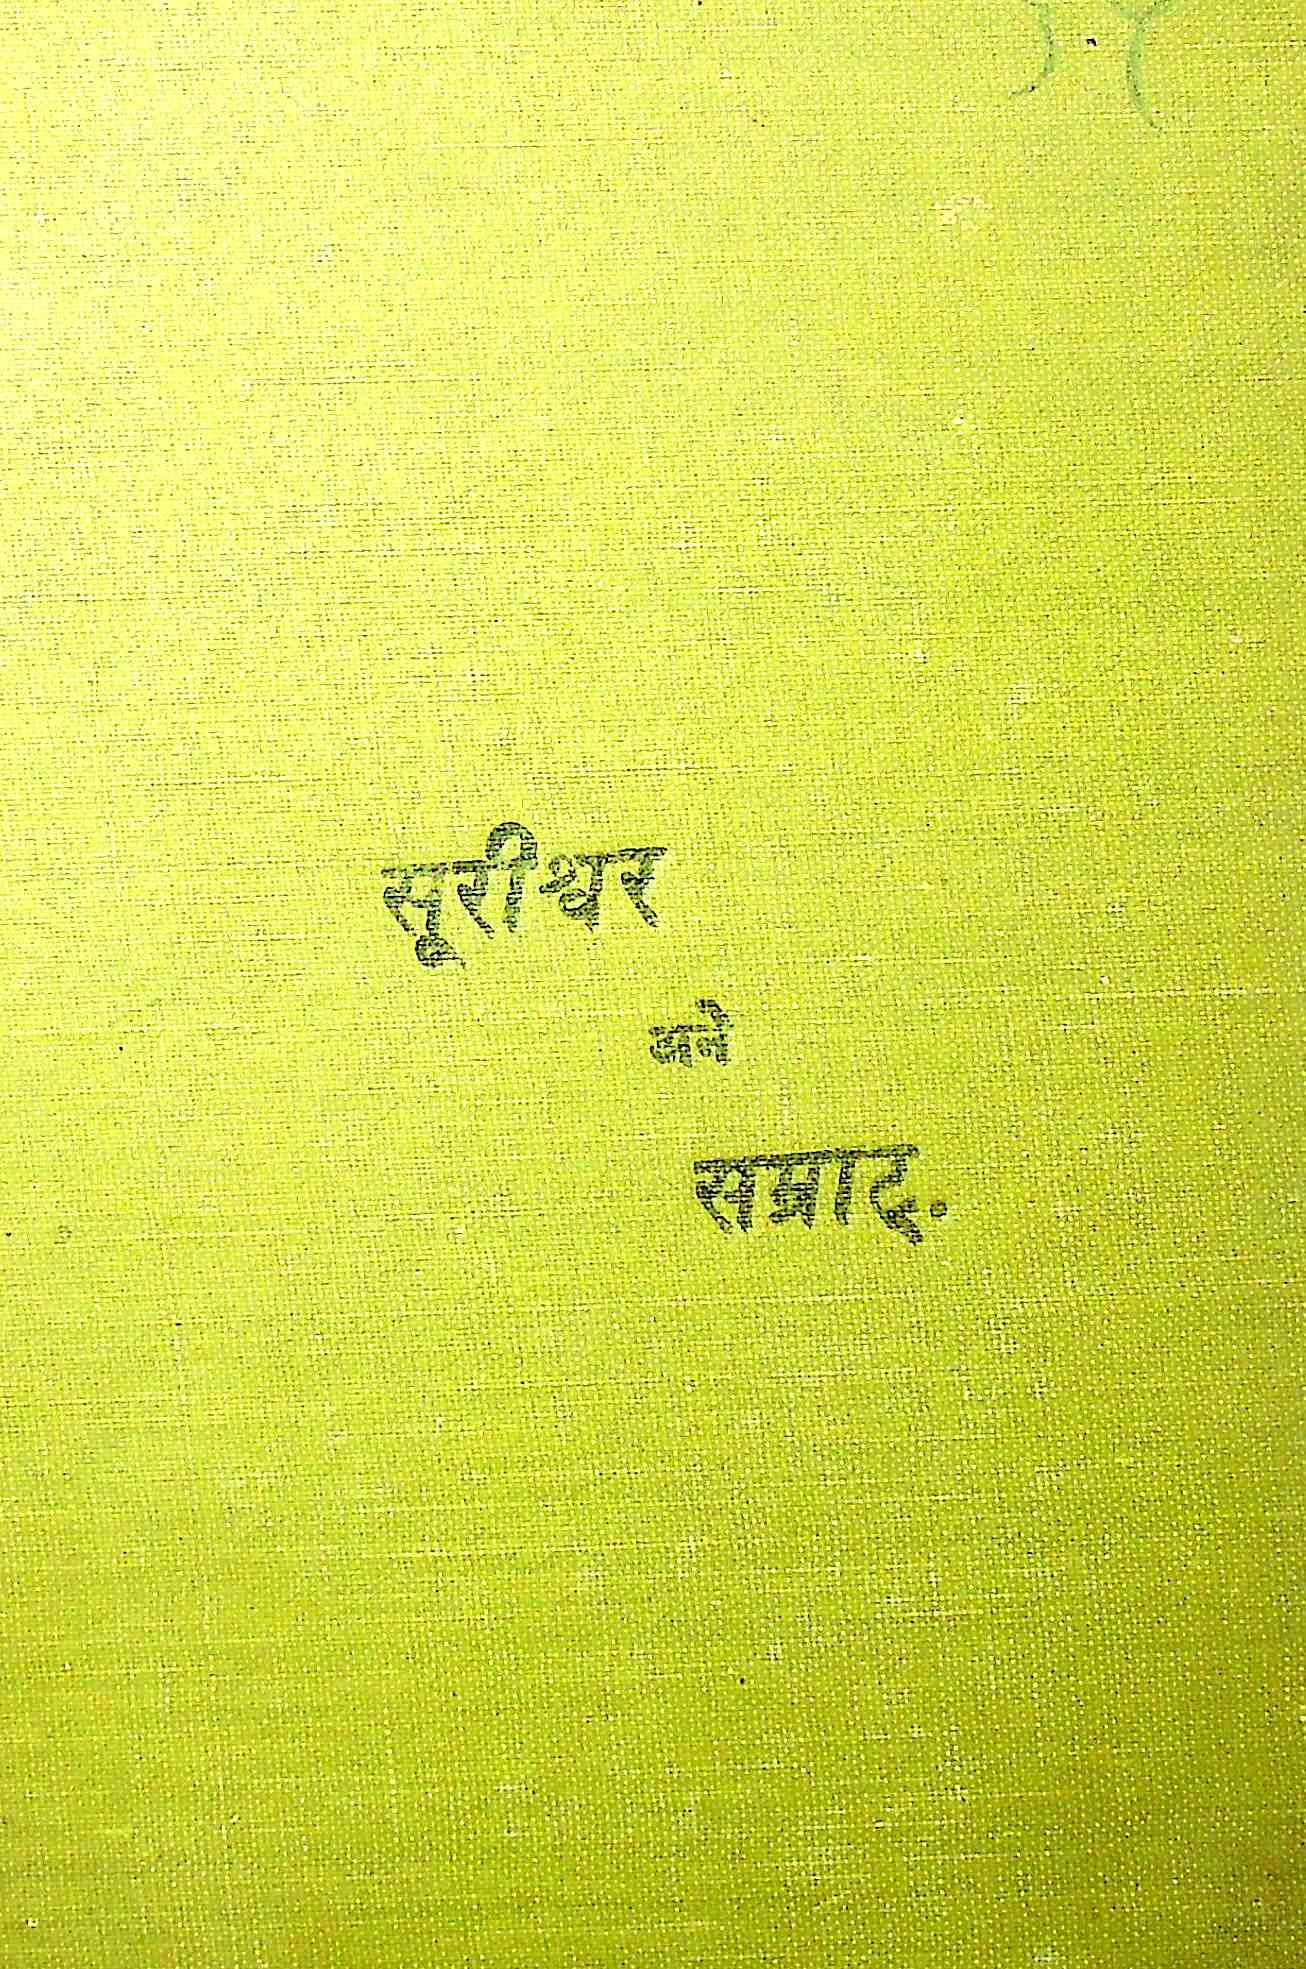 सूरीश्वर
अने
सम्राट्.